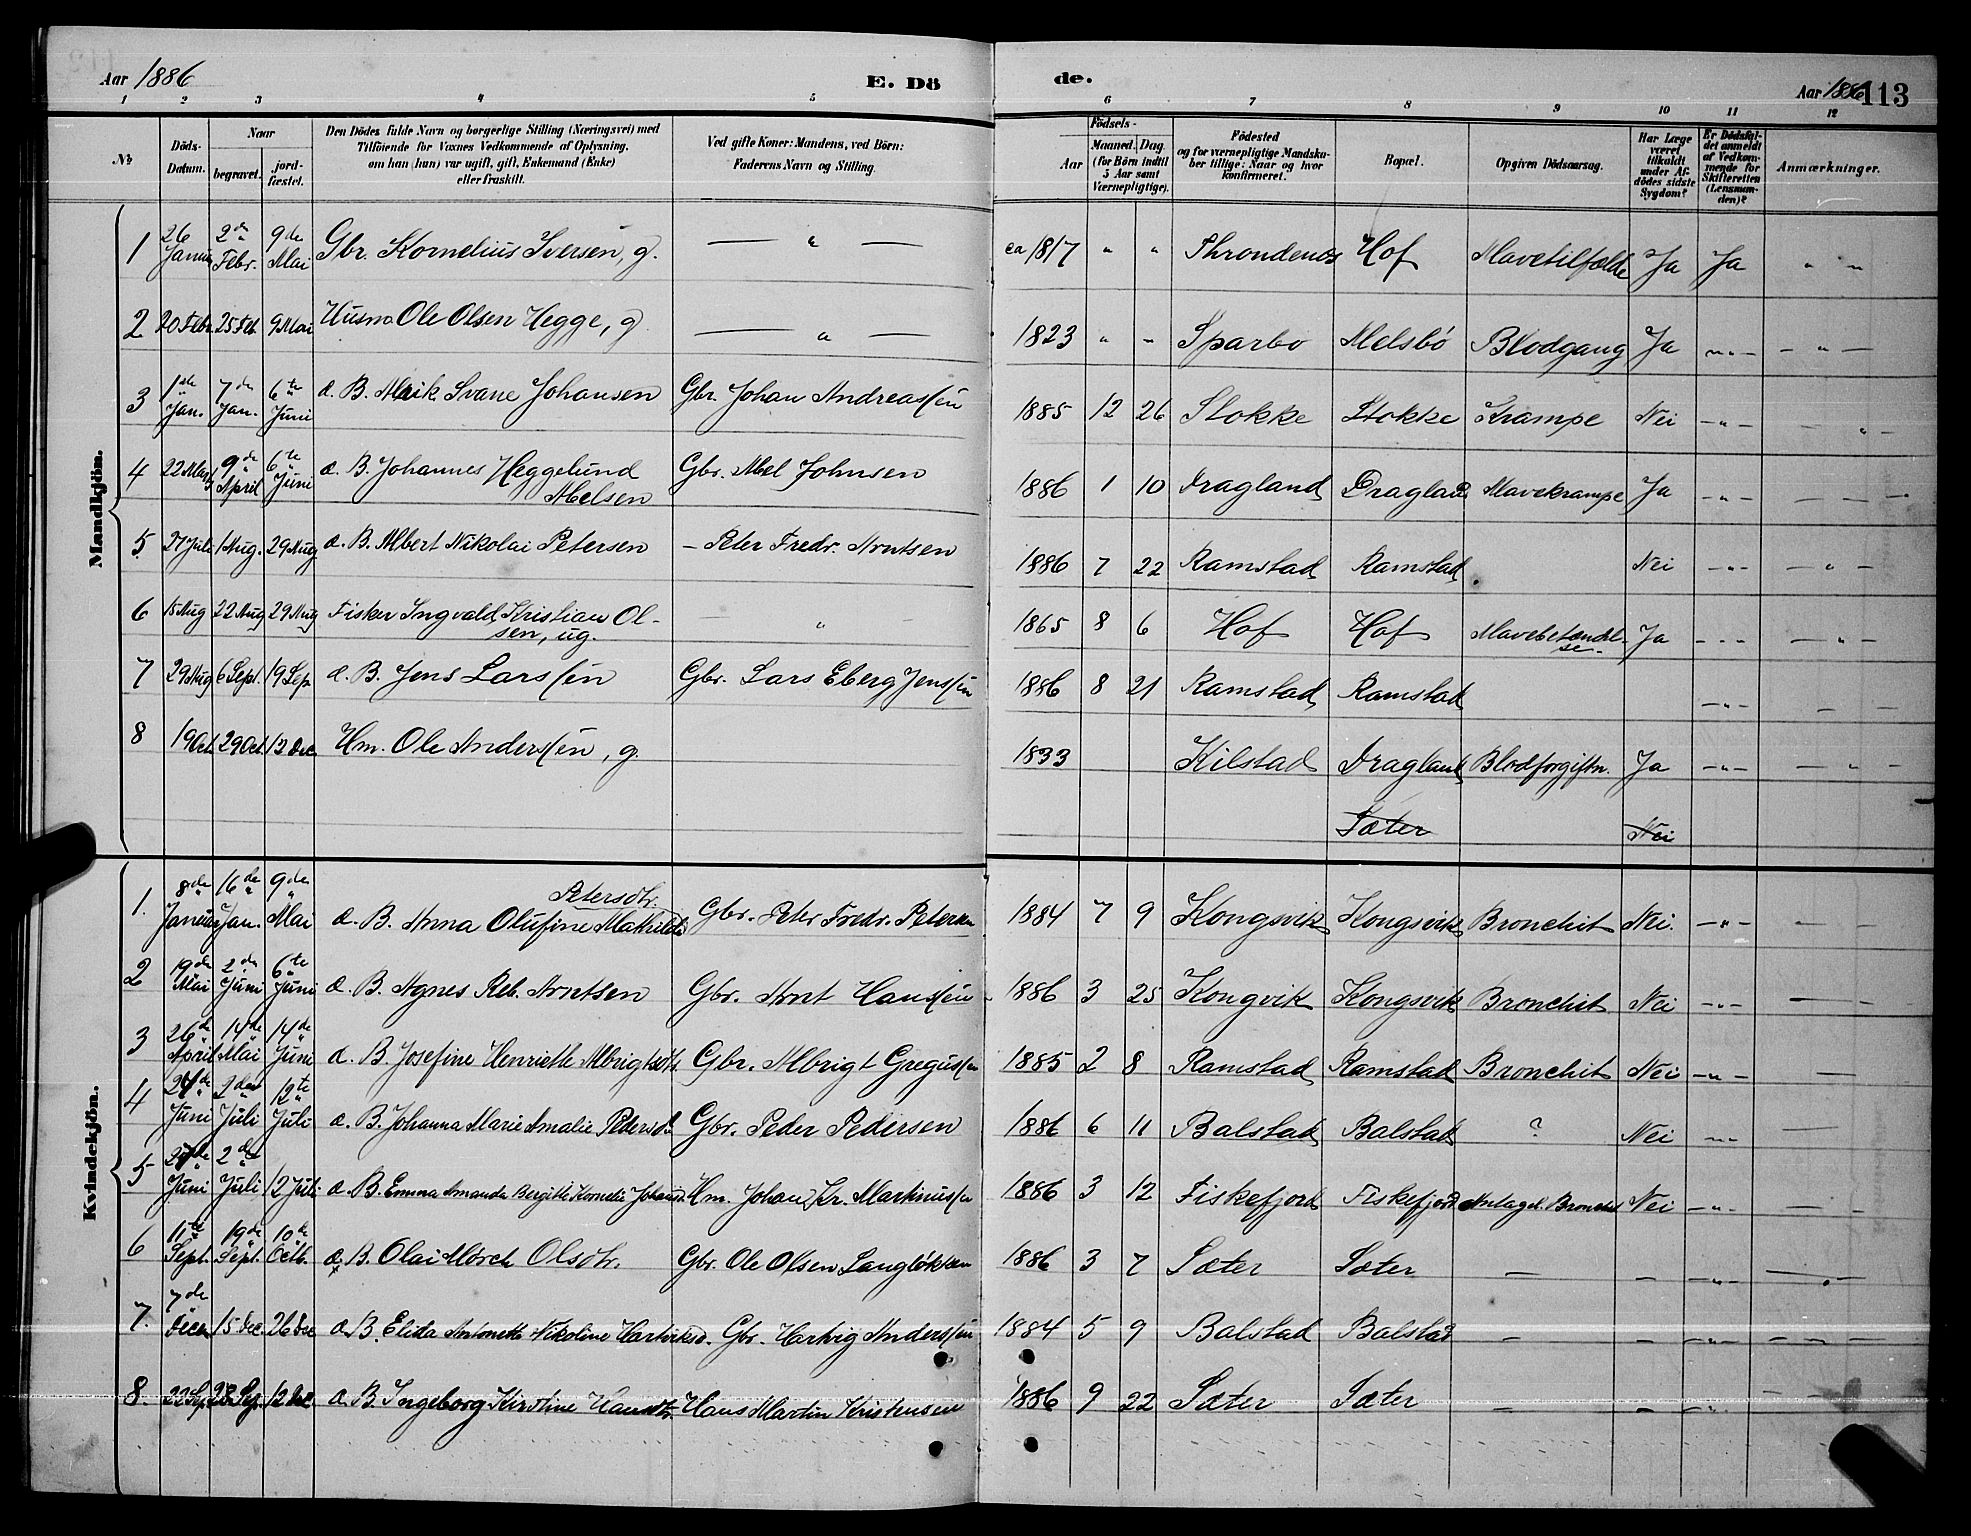 Aar 1886 E. Döde. Aar 1886 113
1 2 3 4 5 6 7 8 9 10 11 12
No Döds-Datum. Naar begravet. jordfæstet. Den Dödes fulde Navn og borgerlige Stilling (Næringsvei) med Tilföiende for Voxnes Vedkommende af Oplysning, om han (hun) var ugift, gift, Enkemand (Enke) eller fraskilt. Ved gifte Koner: Mandens, ved Börn: Faderens Navn og Stilling. Födsels- Aar Maaned. Dag. (for Börn indtil 5 Aar samt Værnepligtige). Födested og for værnepligtige Mandskaber tillige: Naar og hvor konfirmeret. Bopæl. Opgiven Dödsaarsag. Har Læge været tilkaldt under Afdödes sidste Sygdom? Er Dödsfaldet anmeldt af Vedkommende for Skifteretten (Lensmanden)? Anmærkninger.
Mandkjön.
1 26 Januar 2den Febr. 9de Mai Gbr. Kornelius Iversen, g. — " — ca 1817 " " Throndenæs Hof Mavetilfælde Ja Ja " "
2 20 Febr. 25 Feb. 9 Mai Husm. Ole Olsen Hegge, g. — " — 1823 " " Sparbo Melsbö Blodgang Ja — " — — " —
3 1ste Jan. 7de Jan. 6te Juni d. B. Alrik Svane Johansen Gbr. Johan Andreassen 1885 12 26 Stokke Stokke Krampe Nei — " — — " —
4 22 Marts 9de April 6te Juni d. B. Johannes Heggelund Abelsen Gbr. Abel Johnsen 1886 1 10 Dragland Dragland Mavekrampe Ja — " — — — —
5 27 Juli 1 Aug. 29 Aug. d. B. Albert Nikolai Petersen — Peter Fredr. Arntsen 1886 7 22 Ramstad Ramstad Nei — " — — " —
6 15 Aug 22 Aug 29 Aug Fisker Ingvald Kristian Olsen, ug. — " — 1865 8 6 Hof Hof Mavebetændelse Ja — " — — " —
7 29 Aug 6 Sept. 19 Sep. d. B. Jens Larssen Gbr. Lars Eberg Jenssen 1886 8 21 Ramstad Ramstad — " — — —
8 19 Oct. 29 Oct. 12 Dec Hm. Ole Anderssen, g. 1833 Kilstad Dragland Blodforgiftn. Ja — " — — " —
Sæter Nei
Kvindekjön.
1. 8de Januar 16de Jan. 9de Mai d. B. Anna Olufine Mathilde Petersdtr. Gbr. Peter Fredr. Petersen 1884 7 9 Kongsvik Kongsvik Bronchit Nei. — " — — —
2 19de Mai 2den Juni 6te Juni d. B. Agnes Reb. Arntsen Gbr. Arnt Hanssen 1886 3 25 Kongvik Kongsvik Bronchit Nei — " — — —
3 26de April 14de Mai 14de Juni d. B. Josefine Henriette Albrigtsdtr. Gbr. Albrigt Gregussen 1885 2 8 Ramstad Ramstad Bronchit Nei — " — —
4 24de Juni 2den Juli 12te Juli d. B. Johanna Marie Amalie Pedersd. Gbr. Peder Pedersen 1886 6 11 Balstad Balstad ? Nei — " — —
5 24de Juni 2den Juli 12 Juli d. B. Emma Amanda Bergitte Kornelie Johansd. Hm. Johan Kr. Markussen 1886 3 12 Fiskefjord Fiskefjord Antagel. Bronchit Nei — " — — —
6 11te Sept. 19de Sept. 10de Octb. d. B. Olai Mörch Olsdtr. Gbr. Ole Olsen Langlökken 1886 3 7 Sæter Sæter — — — " — — " —
7. 7de Decem 15 Dec 26 Dec d. B. Elida Antonette Nikoline Hartviksd. Gbr. Hartvig Anderssen 1884 5 9 Balstad Balstad — — — " — — — —
8. 22 Sep. 28 Sep. 12 Dec d. B. Ingeborg Kirstine Hansdtr. Hans Martin Kristensen 1886 9 22 Sæter Sæter — — — " — — — —